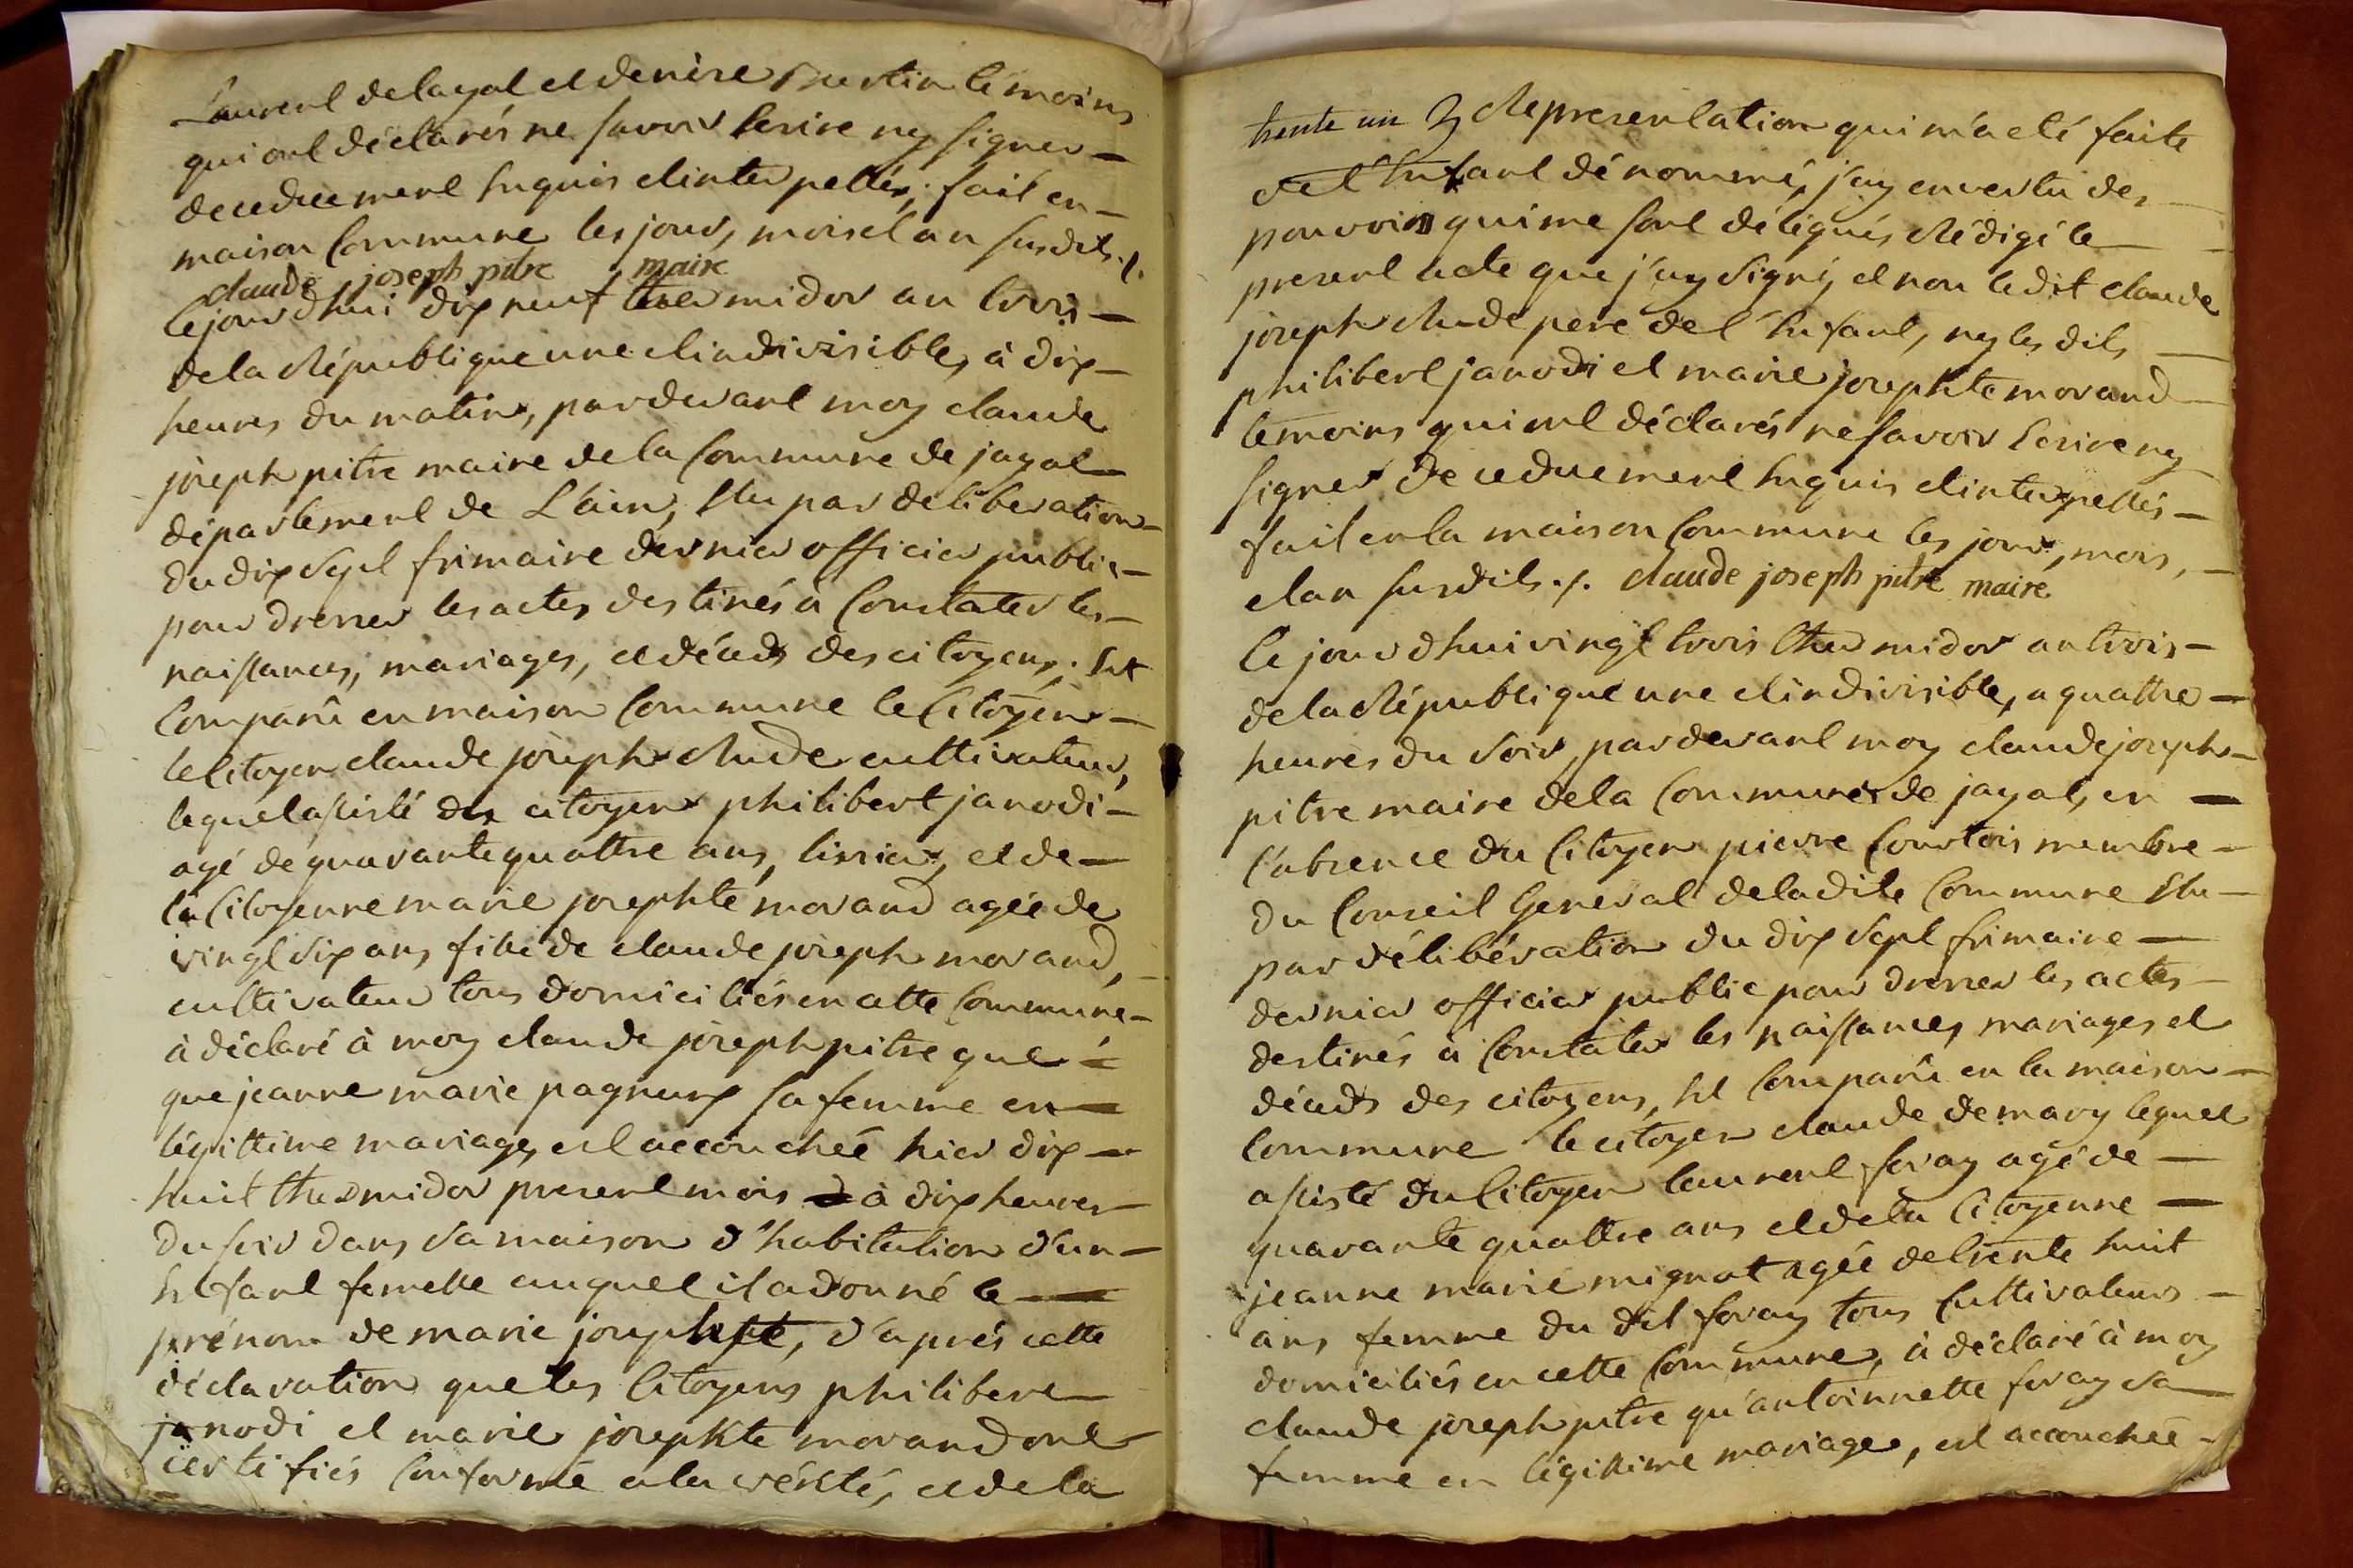 Laurent delayal et denise Burtin témoins
qui ont déclarés ne savoir Ecrire ny signer —
de ce duement Enquis et interpellés; fait en —
maison Commune les jour, mois et an susdits ./.
claude joseph pitre maire
Ce jourd'hui dix neuf thermidor an trois —
de la République une et indivisible, à dix —
heures du matin, pardevant moy claude
joseph pitre maire de la Commune de jayat
département de L'ain, Elu par deliberation —
du dix sept frimaire dernier officier public —
pour dresser les actes destinés à Constater les —
naissances, mariages, et décads des citoyens; Est
Comparû en maison Commune le Citoyen —
le Citoyen claude joseph Rude cultivateur,
lequel assisté des citoyens philibert janodi —
agé de quarante quattre ans, tissier, et de —
la Citoyenne marie josephte morand agée de
vingt six ans fille de claude joseph morand,
cultivateur tous domiciliés en cette Commune —
à déclaré à moy claude joseph pitre que =
que jeanne marie pagneux sa femme en —
légittime mariage, est accouchée hier dix —
huit thermidor present mois à dix heures
du soir dans sa maison d'habitation d'un —
Enfant femelle auquel il a donné le —
prénom de marie josephte, d'après cette
déclaration que les Citoyens philibert
janodi et marie josephte morand ont
certifiés Conforme a la vérité, et de la
trente un Representation qui m'a eté faite
de l'Enfant dénommé, j'ay en vertu des
pouvoirs qui me sont délégués Rédigé le —
present acte que j'ay signé, et non ledit claude
joseph Rude pere de l'Enfant, ny les dits —
philibert janodi et marie josephte morand
temoins qui ont déclarés ne savoir Ecrire ny
signer de ce duement Enquis et interpellés —
fait en la maison Commune les jour, mois, —
et an susdits ./. claude joseph pitre maire
Ce jourd'hui vingt trois thermidor an trois —
de la République une et indivisible, a quattre —
heures du soir, pardevant moy claude joseph —
pitre maire de la Commune de jayat, en —
l'absence du Citoyen pierre Courtois membre —
du Conseil General de ladite Commune Elu —
par délibération du dix sept frimaire —
dernier officier public pour dresser les actes
destinés à Constater les naissances, mariages et
décads des citoyens, Est Comparû en la maison —
Commune le citoyen claude demary lequel
assisté du Citoyen laurent feray agé de —
quarante quattre ans et de la Citoyenne —
jeanne marie mignot agée de trente huit
ans femme du dit feray tous Cultivateurs —
domiciliés en cette Commune, à déclaré à moy
claude joseph pitre qu'antoinnette feray sa
femme en légittime mariage, est accouchée —